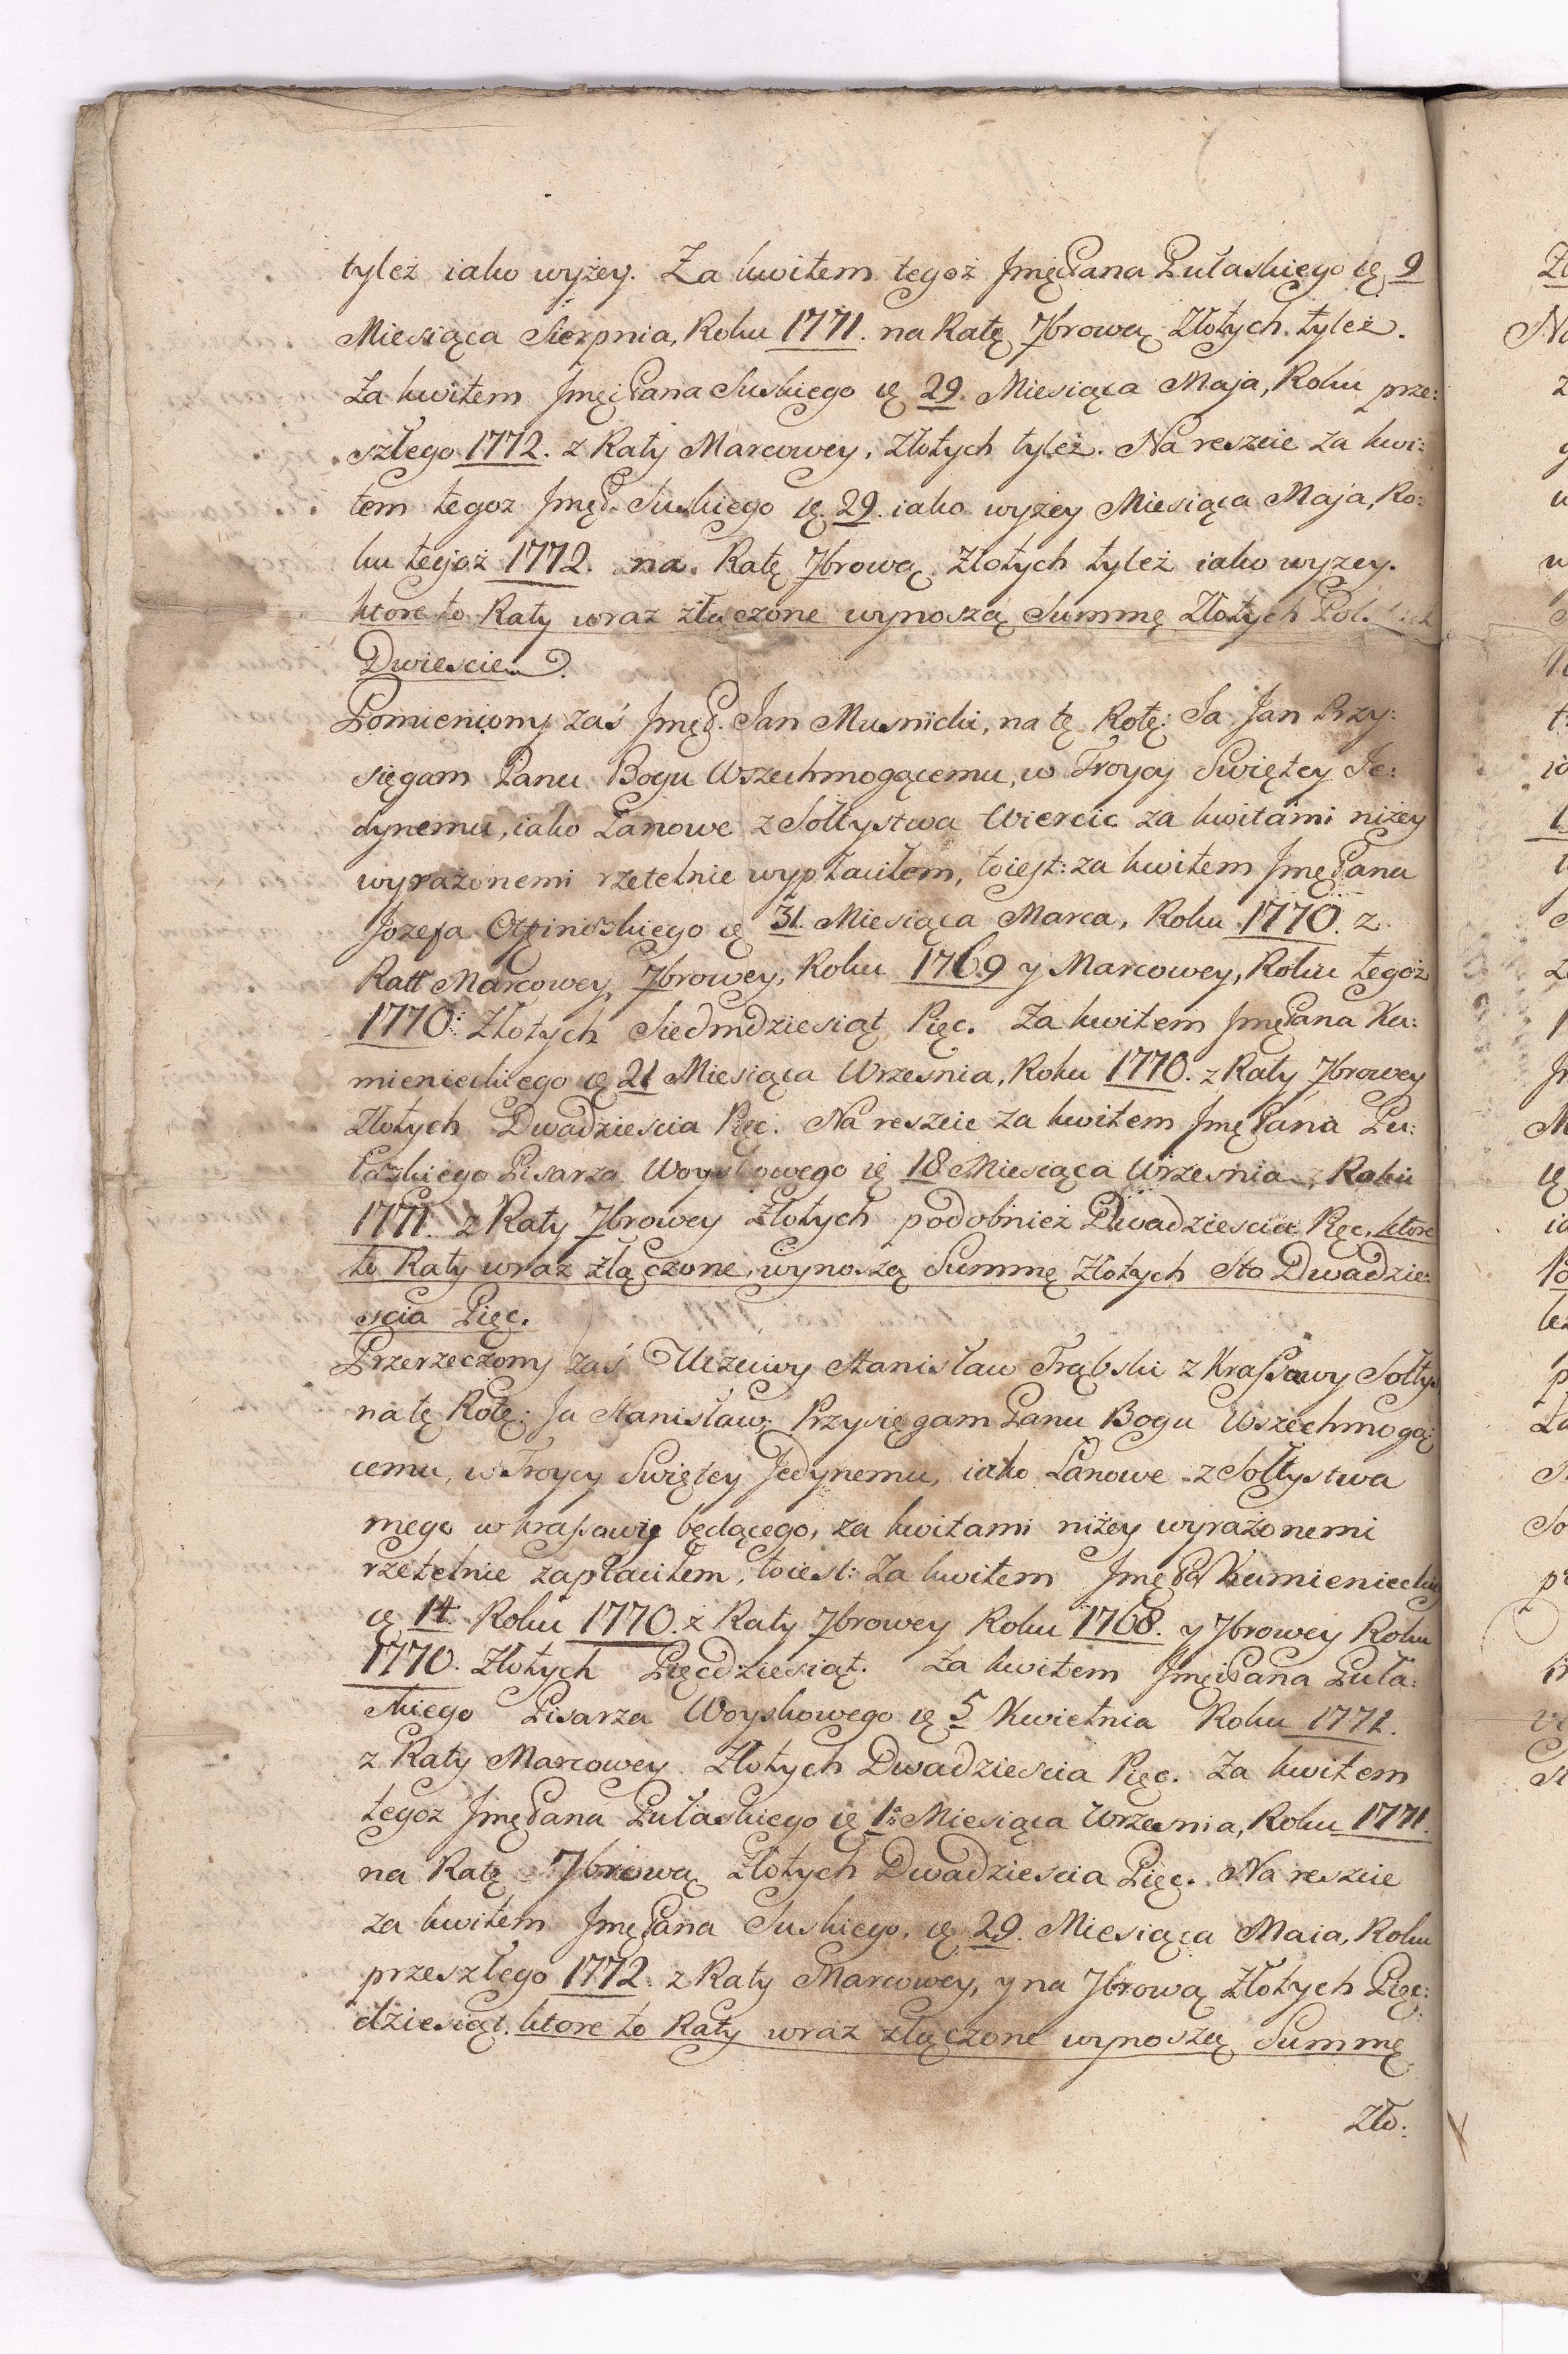 tyleż iako wyżey. Za kwitem tegoż JmęPana Pułaskiego ię 9
Miesiąca Sierpnia, Roku 1771. na Ratę 7brową Złotych tyleż.
Za kwitem JmęiPana Suskiego ię 29. Miesiąca Maja, Roku prze:
szłego 1772. z Raty Marcowey, Złotych tyleż. Na reszcie za kwi:
tem tegoz JmęP. Suskiego ię 29. iako wyżey Miesiąca Maja, Ro:
ku tegoż 1772. na Ratę 7brową Złotych tyleż iako wyzey.
ktore to Raty wraz złączone wynoszą Summę Złotych Pol.
Dwiescie.
Pomieniony zaś JmęP. Jan Musnicki, na tę Rotę: Ja Jan Przy:
sięgam Panu Bogu Wszechmogącemu, w Troycy Swiętey Je:
dynemu, iako Łanowe z Sołtystwa Wiercic za kwitami niżey
wyrażonemi rzetelnie wypłaciłem, toiest: za kwitem JmęPana
Jozefa ię 31. Miesiąca Marca, Roku 1770. z
Ratt Marcowey, 7browey, Roku 1769 y Marcowey, Roku tegoż
1770: Złotych Siedmdziesiąt Pięc. Za kwitem JmęPana Ka:
mienieckiego ię 21 Miesiąca Wrzesnia, Roku 1770. z Raty 7browey
Złotych Dwadziescia Pięc. Na reszcie za kwitem JmęPana Pu:
łaskiego Pisarza Woyskowego ię 18 Miesiąca Wrzesnia, Roku
1771. z Raty 7browey Złotych podobnież Dwadziescia Pięc, ktore
to Raty wraz złączone, wynoszą Summę Złotych Sto Dwadzie:
scia Pięc.
Przerzeczony zaś Uczciwy Stanisław Trąbski z Krassawy Sołtys
na tę Rotę: Ja Stanisław Przysięgam Panu Bogu Wszechmogą
cemu, w Troycy Swiętey Jedynemu, iako Łanowe z Sołtystwa
mego w krassawie będącego, za kwitami niżey wyrażonemi
rzetelnie zapłaciłem, toiest: Za kwitem JmęPa Kamienieckie
ię 14. Roku 1770. z Raty 7browey Roku 1768. y 7browey Roku
1770. Złotych Pięcdziesiąt. Za kwitem JmęiPana Puła:
skiego Pisarza Woyskowego ię 5 Kwietnia Roku 1771.
z Raty Marcowey Złotych Dwadziescia Pięc. Za kwitem
tegoż JmęPana Pułaskiego ię 1: Miesiąca Wrzesnia, Roku 1771.
na Ratę 7brową Złotych Dwadziescia Pięc. Na reszcie
za kwitem JmęPana Suskiego, ię 29. Miesiąca Maia, Roku
przeszłego 1772. z Raty Marcowey, y na 7brową Złotych Pięc:
dziesiąt. ktore to Raty wraz złączone wynoszą Summę
Zło: